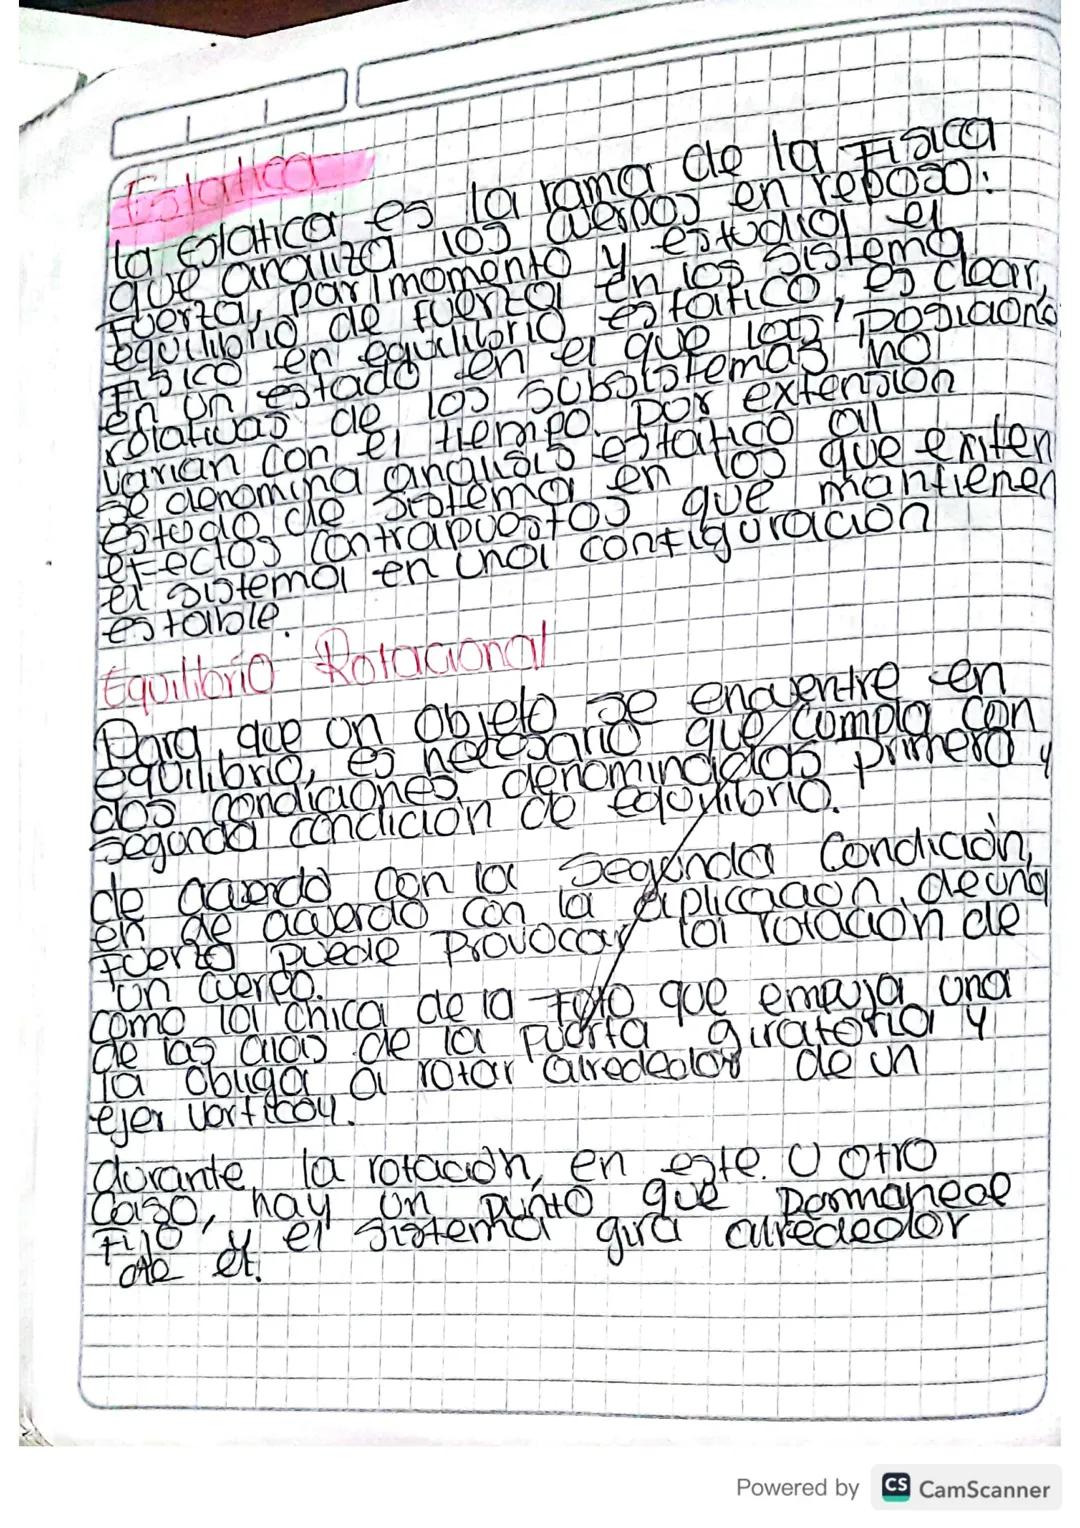 Estatica
La estatica es la rama de la Fisica
que analiza los cuerpos en reposo:
Fuerza, par/momento y estudia el
equilibrio de fuerza en los sistema
Fisico en equilibrio estatico, es clear,
en un estado en el que las posiciond
relativas de los subsistemas no
varian con el tiempo. por extension
se denomina analisis estatico al
estudo de sistema en los que exiten
efectos contrapuestos que mantienen
el sistema en una configuración
estable.
Equilibrio Rotacional
Para que un objeto se encuentre en
equilibrio, es necesario que cumpla con
dos condiciones denomindados primero y
segunda condición de equilibrio.
de acuerdo con la segunda Condición,
en de acuerdo con la aplicacion de una
Fuerza puede Provocar la rotación de
un cuerpo.
como la chica de la Foto que empuja una
de las alas de la puerta giratoria y
la obliga a rotar alrededor de un
ejer vertical.
durante la rotación, en este U otro
Cazo, hay un punto que permanece
Fijo y el sistema gira alrededor
de el.
Powered by CS CamScanner